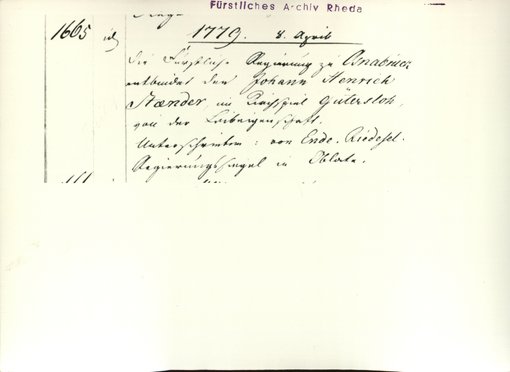 Fürstliches Archiv Rheda
1665
1779. 8. April
die Fürstliche Regierung zu Osnabrück
entbindet den Johann Henrich
Staender im Kirchspiel Gütersloh,
von der Leibeigenschaft.
Unterschrieben: von Ende. Riedesel.
Regierungssiegel in Oblate.